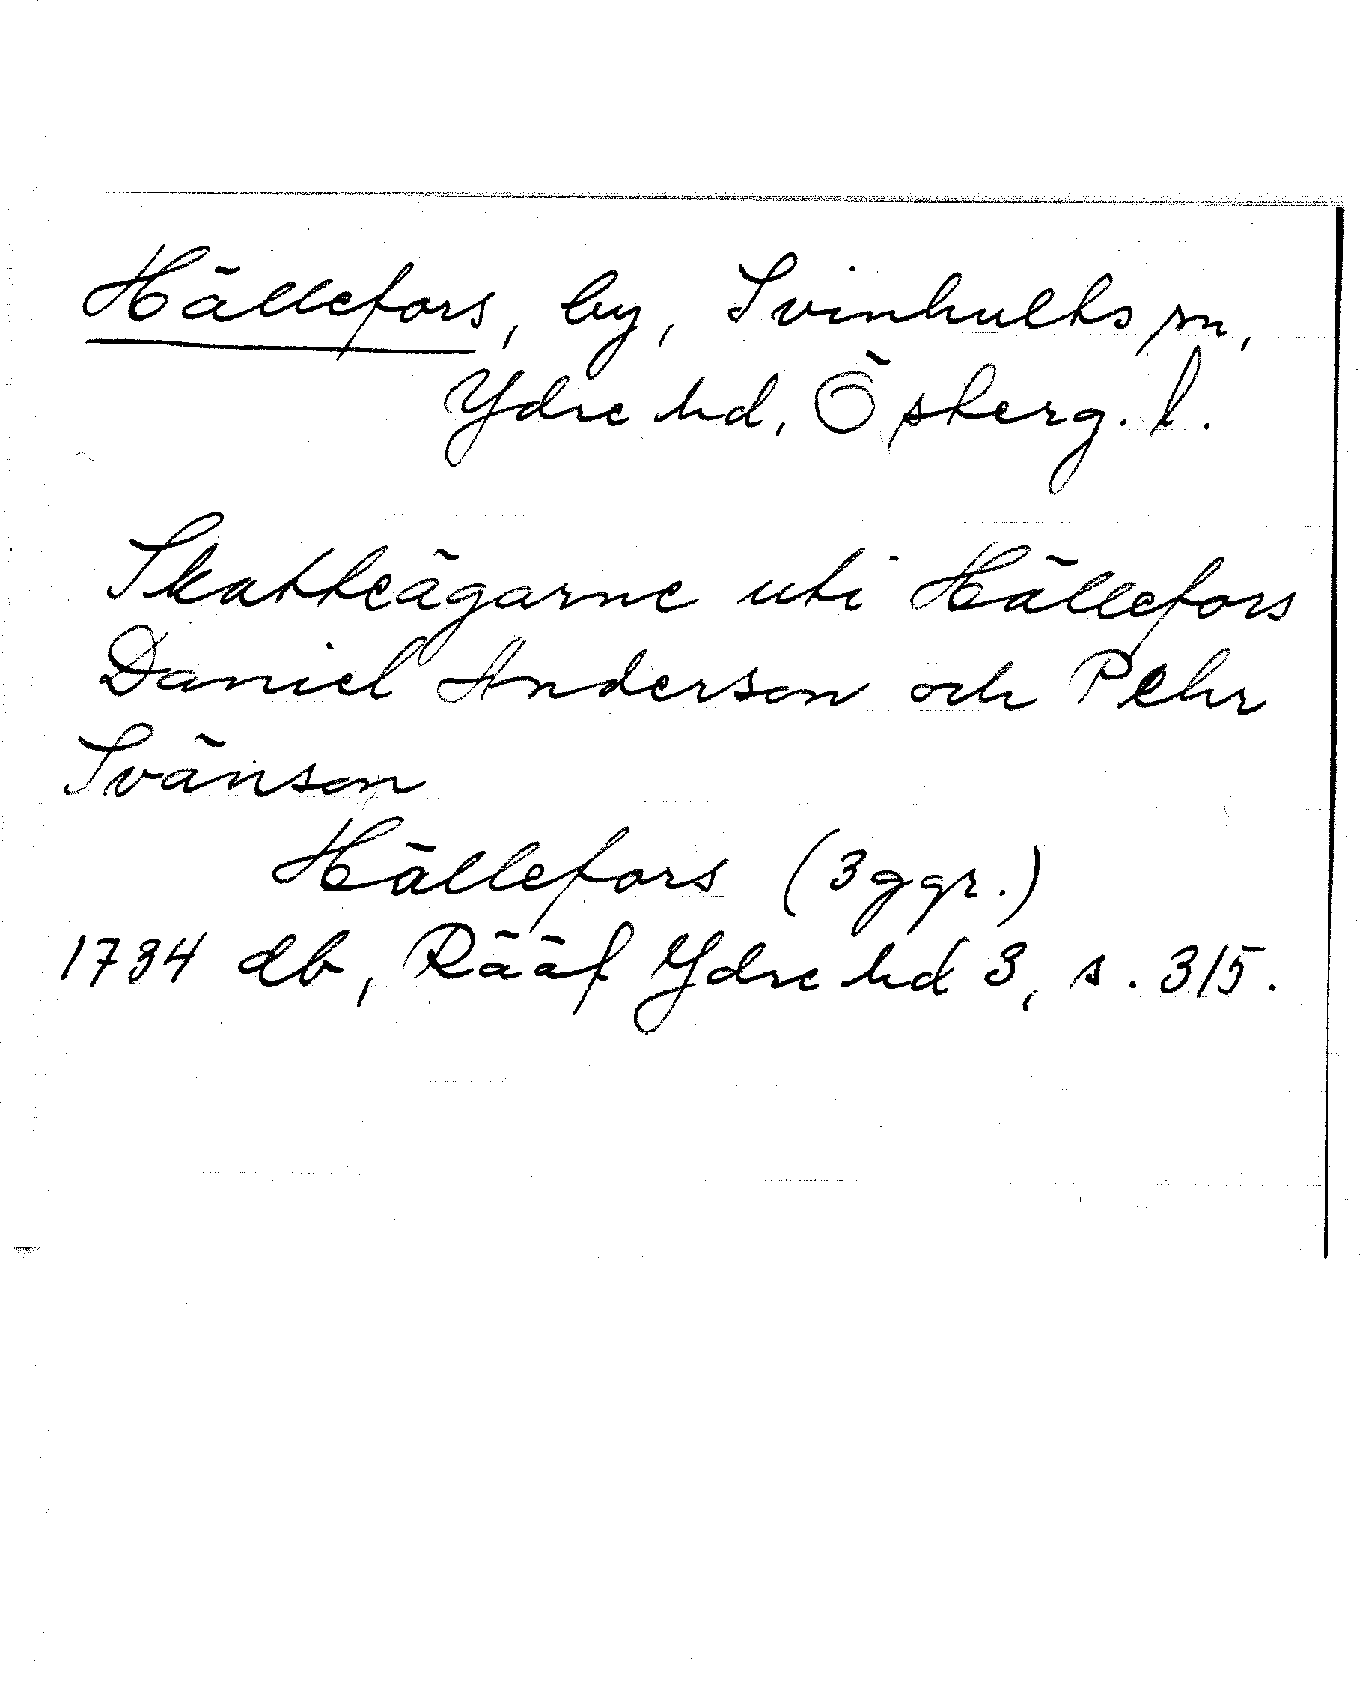 Hällefors, by, Svinhults sn,
Ydre hd, Österg. l.
Skatteägarne uti Hällefors
Daniel Anderson och Pehr
Svänson
Hällefors (3 ggr.)
1734 db, Rääf Ydre hd 3, s. 315.